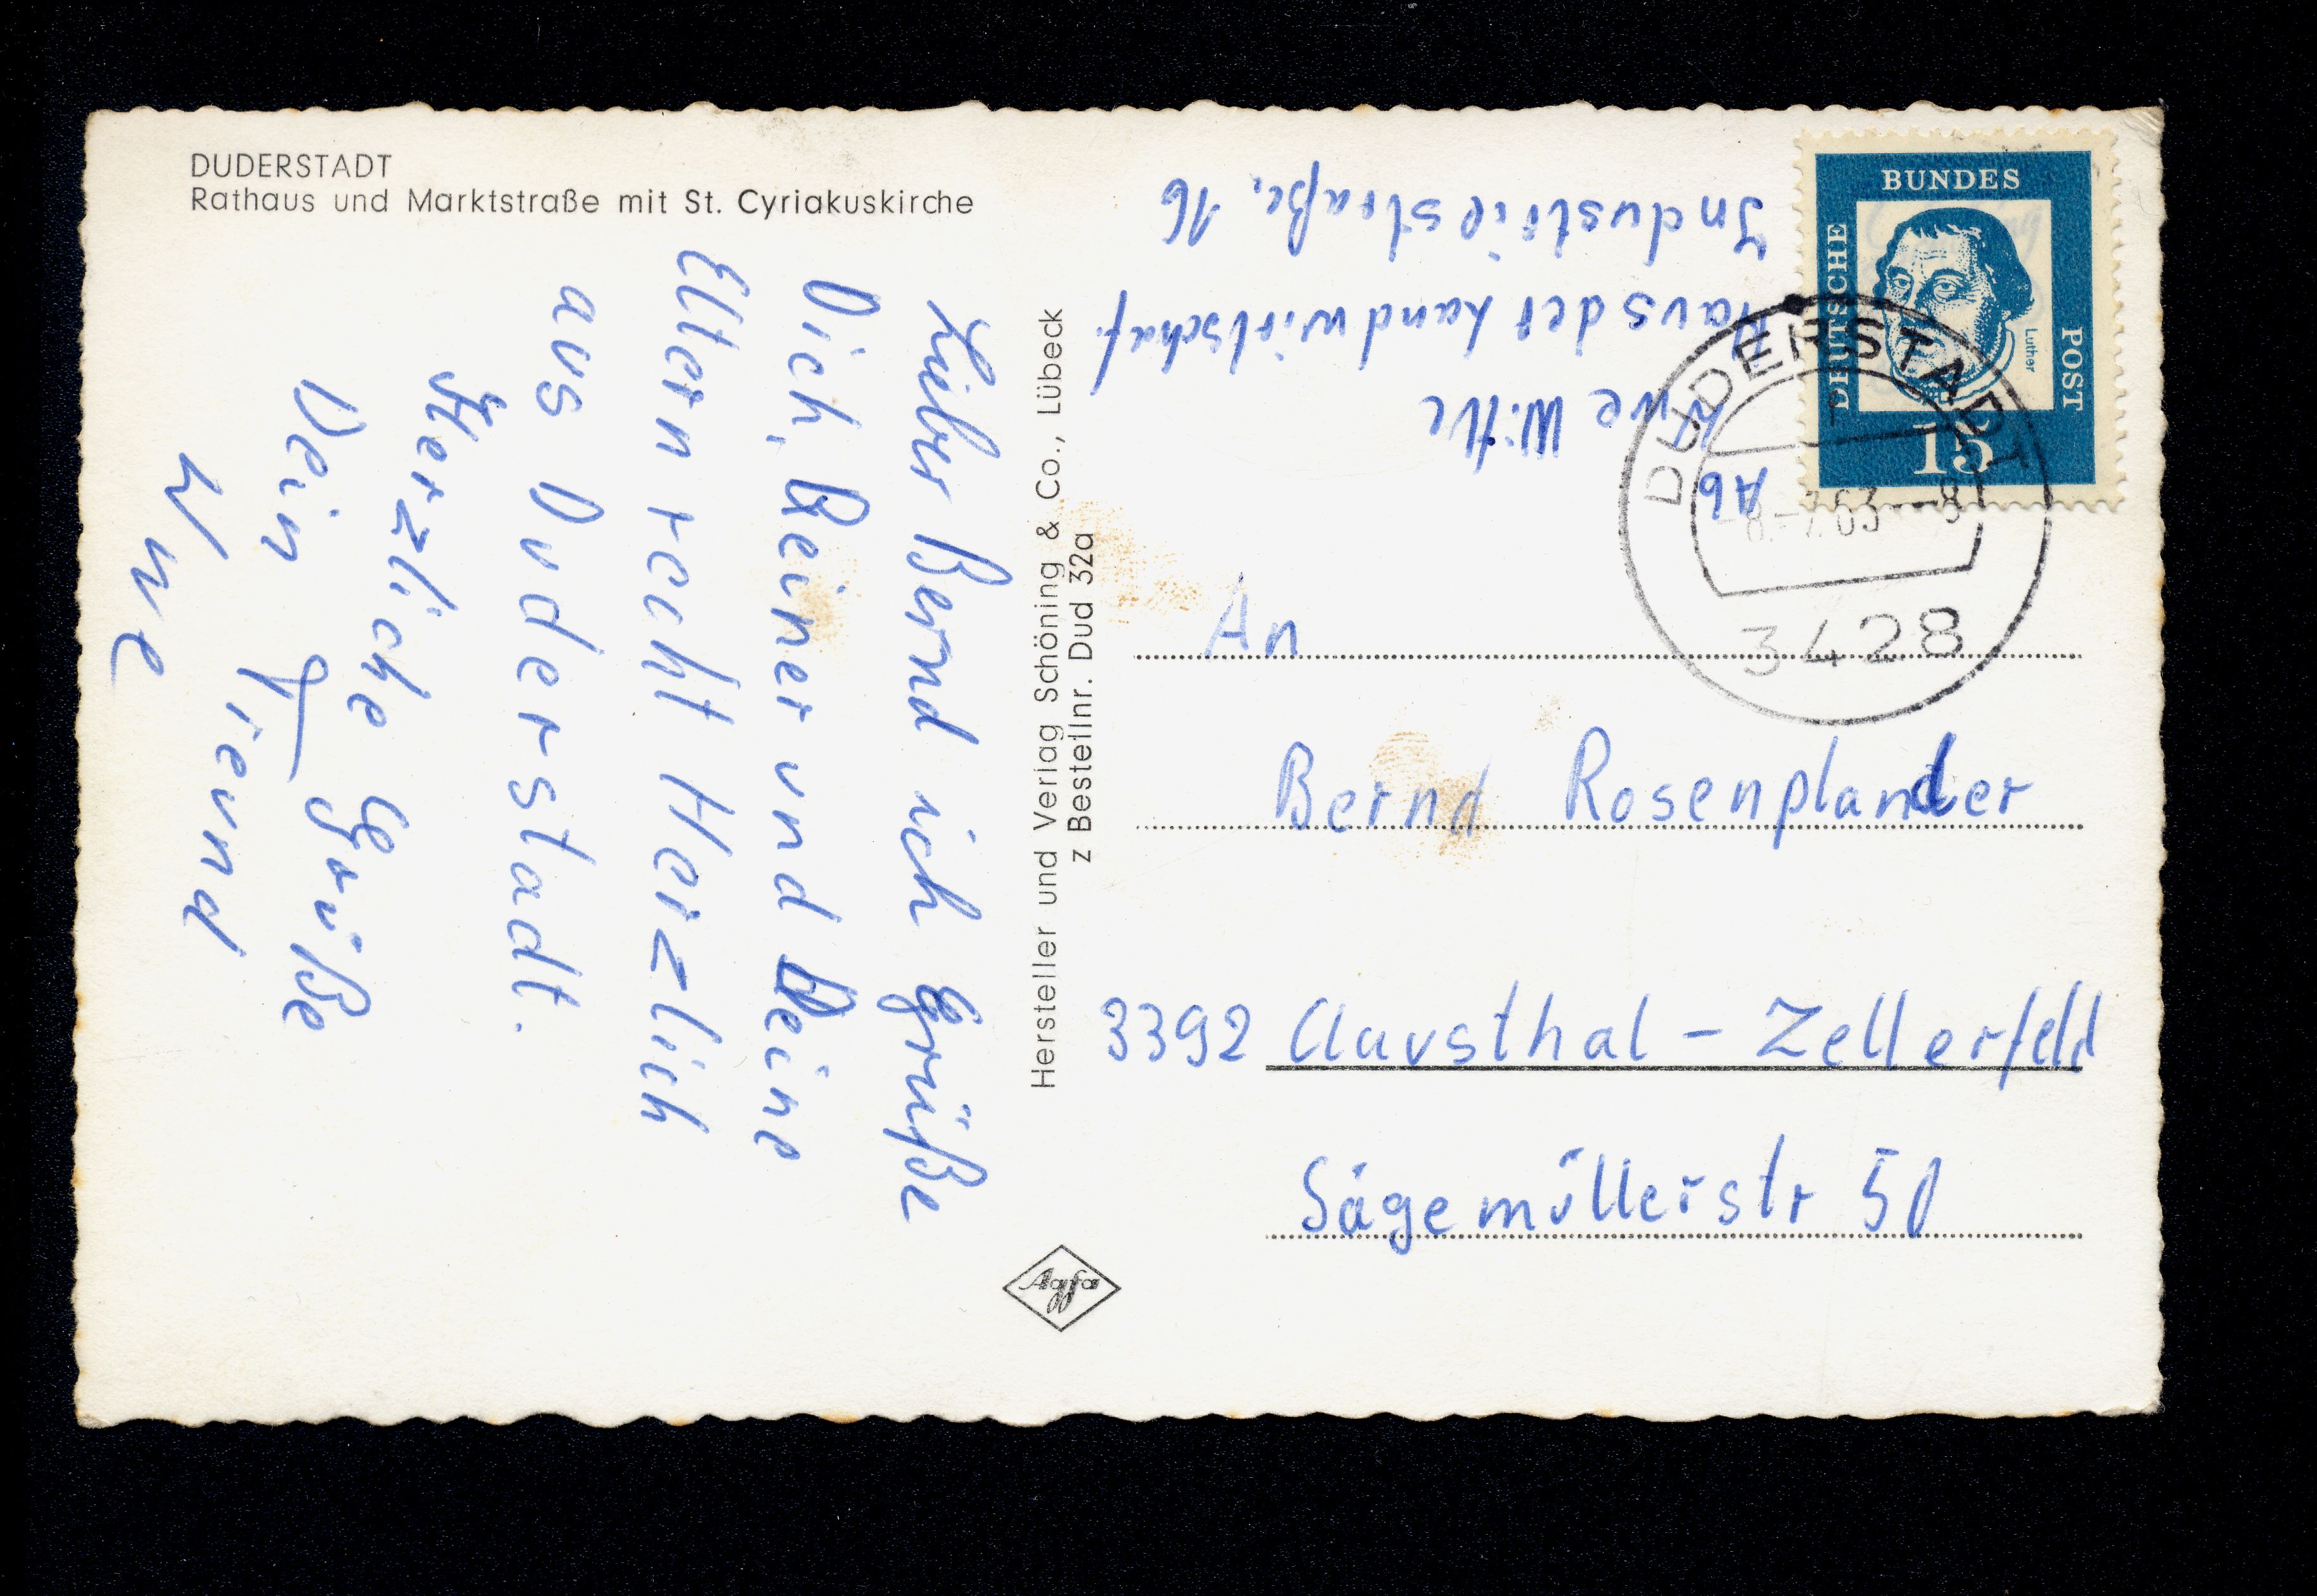 DUDERSTADT
Rathaus und Marktstraße mit St. Cyriakuskirche
Lieber Bernd ich Grüße
Dich, Deiner und Deine
Eltern recht Herzlich
aus Duderstadt.
Herzliche Grüße
Dein Freund
Uwe
Hersteller und Verlag Schöning & Co., Lübeck
z Bestellnr. Dud 32a
Agfa
Ab
Uwe Witte
Haus der Landwirtschaf.
Industriestraße. 16
DEUTSCHE
BUNDES
POST
Luther
15
DUDERSTADT
-8.-7.63--8
3428
An
Bernd Rosenplander
3392 Clausthal - Zellerfeld
Sägemüllerstr 50